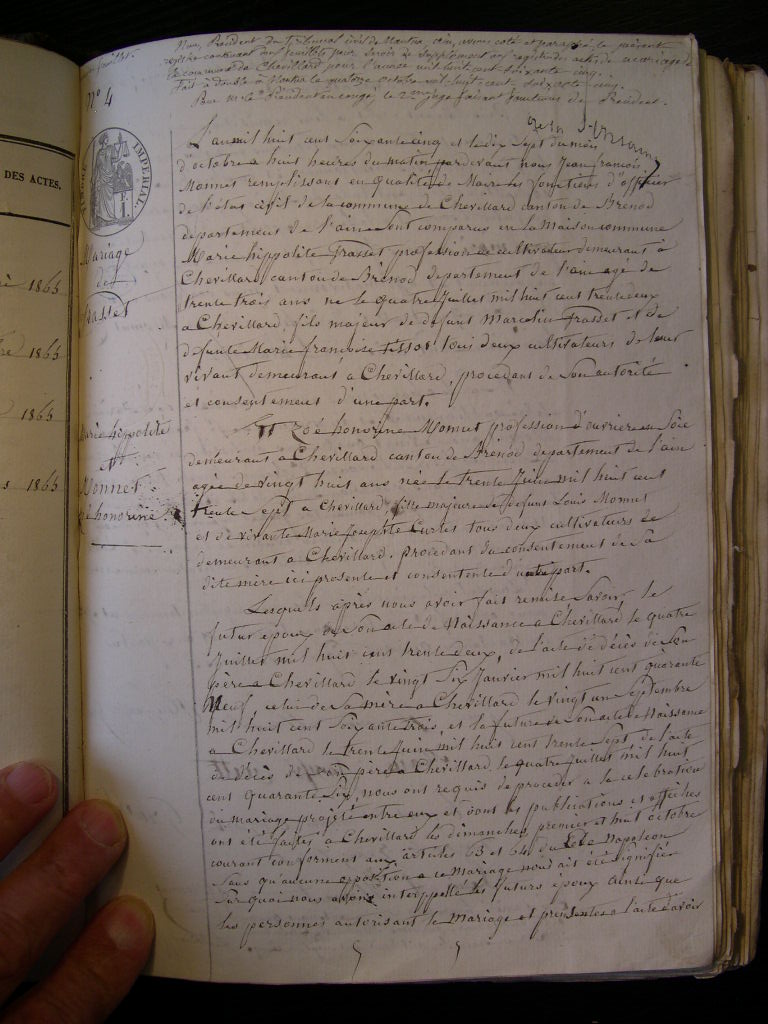 DES ACTES.
1865
1865
1865
1865
Nous, Président du tribunal civil de Nantua, ain, avons coté et paraphé le présent
registre contenant deux feuillets pour servir de supplément au registre des actes de mariage de
la commune de Chevillard pour l'année mil huit cent soixante cinq.
Fait à double à Nantua le quatorze octobre mil huit cent soixante cinq.
Pour Mr le Président en congé, le 2me juge faisant fonctions de Président.
N° 4
TIMBRE IMPERIAL
F.
1.
Mariage
de
Frasset
Marie hippolite
et
Monnet
Zoé honorine
L'an mil huit cent Soixante cinq et le dix Sept du mois
d'octobre a huit heures du matin pardevant nous Jean françois
Monnet remplissant en qualité de Maire les fonctions d'officier
de l'état civil de la commune de Chevillard canton de Brénod
departement de l'ain Sont comparus en la Maison commune
Marie hippolite Frasset profession de cultivateur demeurant à
Chevillard canton de Brénod departement de l'ain agé de
trente trois ans né le quatre Juillet mil huit cent trente deux
a Chevillard, fils majeur de defunt Marcelin Frasset et de
defunte Marie françoise tissot tous deux cultivateurs de leur
vivant demeurant a Chevillard, procédant de Son autorité
et consentement d'une part.
Et Zoé honorine Monnet profession d'ouvriere en Soie
demeurant a Chevillard canton de Brénod departement de l'ain
agée de vingt huit ans née le trente Juin mil huit cent
trente Sept a Chevillard, fille majeure de defunt Louis Monnet
et de vivante Marie Josephte Curtet tous deux cultivateurs
demeurant a Chevillard. procédant du consentement de Sa
dite mère ici presente et consentente d'autre part.
Lesquels après nous avoir fait remise Savoir le
futur époux de Son acte de Naissance a Chevillard le quatre
Juillet mil huit cent trente deux, de l'acte de décès de Son
père a Chevillard le vingt Six Janvier mil huit cent quarante
Neuf, celui de Sa mère a Chevillard le vingt un Septembre
mil huit cent Soixante trois, et la future de Son acte de Naissance
a Chevillard le trente Juin mil huit cent trente Sept de l'acte
de décès de Son père a Chevillard le quatre Juillet mil huit
cent quarante Six, nous ont requis de proceder a la celebration
du mariage projeté entre eux et dont les publications et affiches
ont été faites a Chevillard les dimanches premier et huit octobre
courant conforment aux articles 63 et 64 du Code Napoleon
Sans qu'aucune opposition a ce Mariage nous ait été Signifiée
Sur quoi nous avons interpellé les futurs époux Ainsi que
les personnes autorisant le Mariage et presentes a l'acte d'avoir